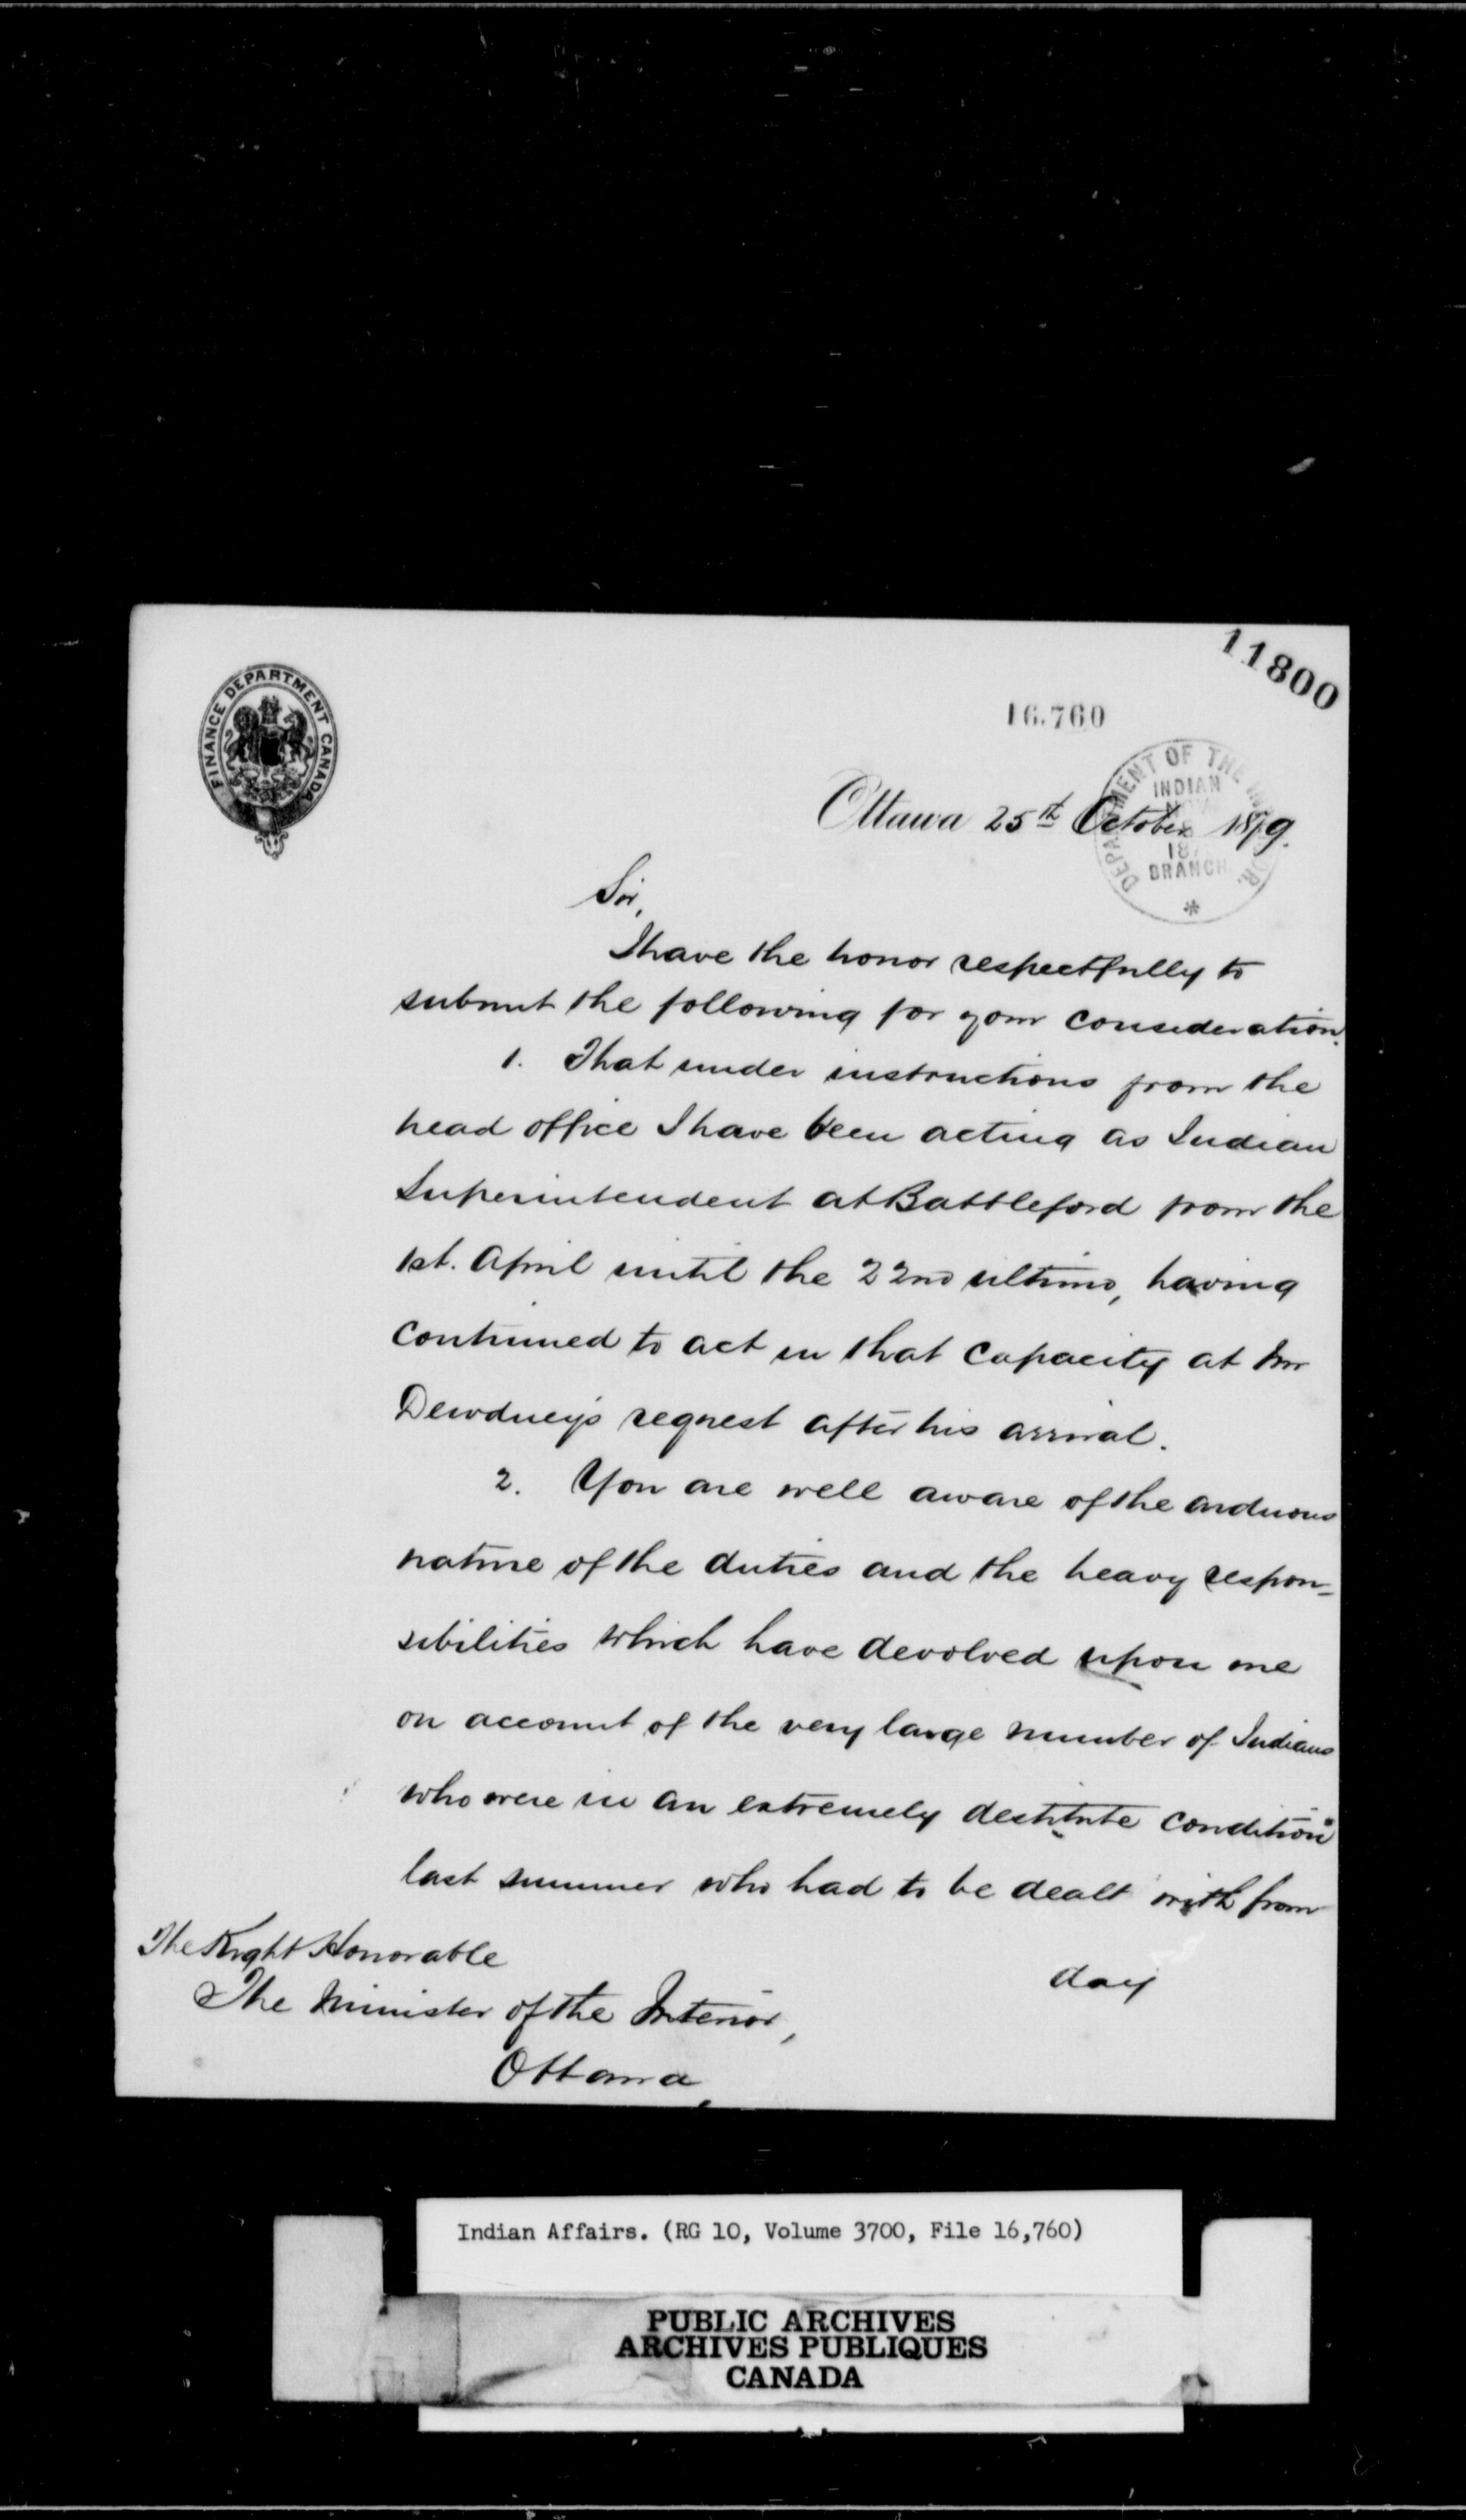 11800
16.760
FINANCE DEPARTMENT CANADA
DEPARTMENT OF THE
INDIAN
BRANCH
Ottawa 25th October 1879.
Sir,
I have the honor respectfully to
submit the following for your consideration.
1. That under instructions from the
head office I have been acting as Indian
Superintendent at Battleford from the
1st. April until the 22nd ultimo, having
continued to act in that capacity at Mr
Dewdney's request after his arrival.
2. You are well aware of the arduous
nature of the duties and the heavy respon-
sibilities which have devolved upon me
on account of the very large number of Indians
who were in an extremely destitute condition
last summer who had to be dealt with from
day
The Right Honorable
The Minister of the Interior,
Ottawa,
Indian Affairs. (RG 10, Volume 3700, File 16,760)
PUBLIC ARCHIVES
ARCHIVES PUBLIQUES
CANADA